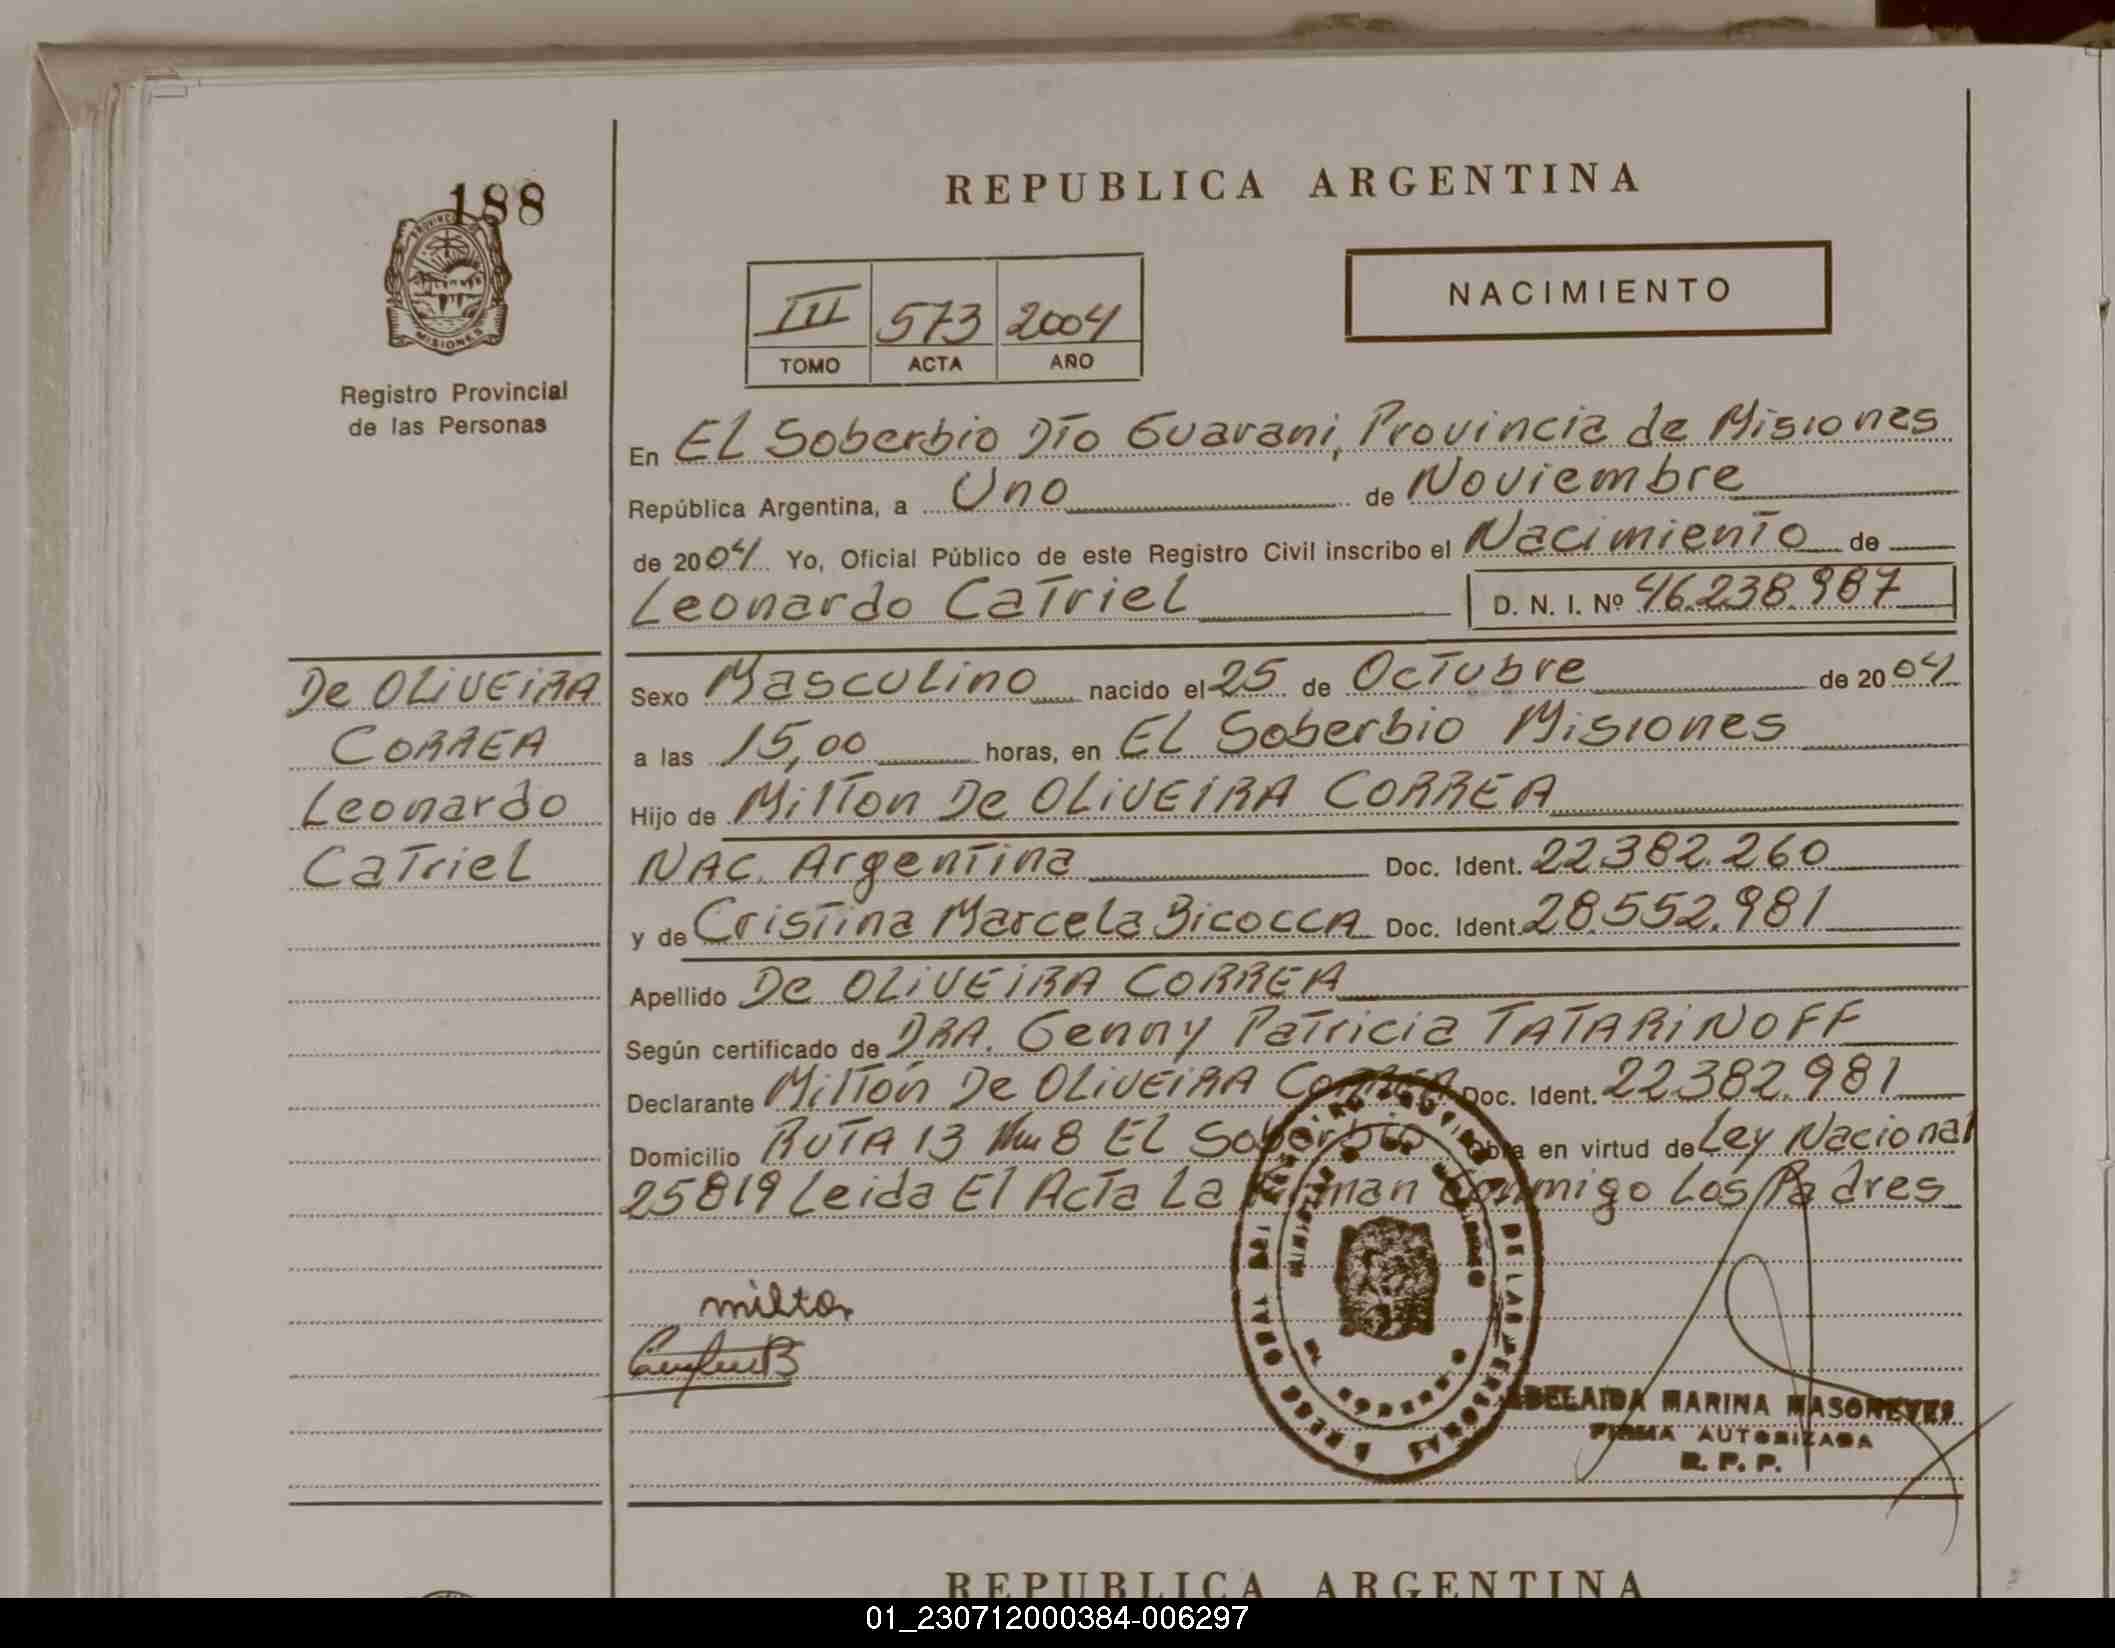 REPUBLICA ARGENTINA
188
PROVINCIA
MISIONES
Registro Provincial
de las Personas
NACIMIENTO
III 573 2004
TOMO ACTA AÑO
En EL Soberbio DTo Guarani, Provincia de Misiones
República Argentina, a Uno de Noviembre
de 2004 Yo, Oficial Público de este Registro Civil inscribo el Nacimiento de
Leonardo Catriel D. N. I. Nº 46.238.987
De OLiVEiRA
CORREA
Leonardo
Catriel
Sexo Masculino nacido el 25 de Octubre de 2004
a las 15,00 horas, en EL Soberbio Misiones
Hijo de Milton De OLiVEiRA CORREA
NAC. Argentina Doc. Ident. 22382.260
y de Cristina Marcela BicoccA Doc. Ident. 28.552.981
Apellido De OLiVEiRA CORREA
Según certificado de DRA. Genny Patricia TATARiNOFF
Declarante Milton De OLiVEiRA CORREA Doc. Ident. 22382.981
Domicilio RUTA 13 Km 8 EL Soberbio Obra en virtud de Ley Nacional
25819 Leida El Acta La Firman Conmigo Los Padres
milton
ADELAIDA MARINA MASONEVES
FIRMA AUTORIZADA
R. P. P.
REPUBLICA ARGENTINA
01_230712000384-006297